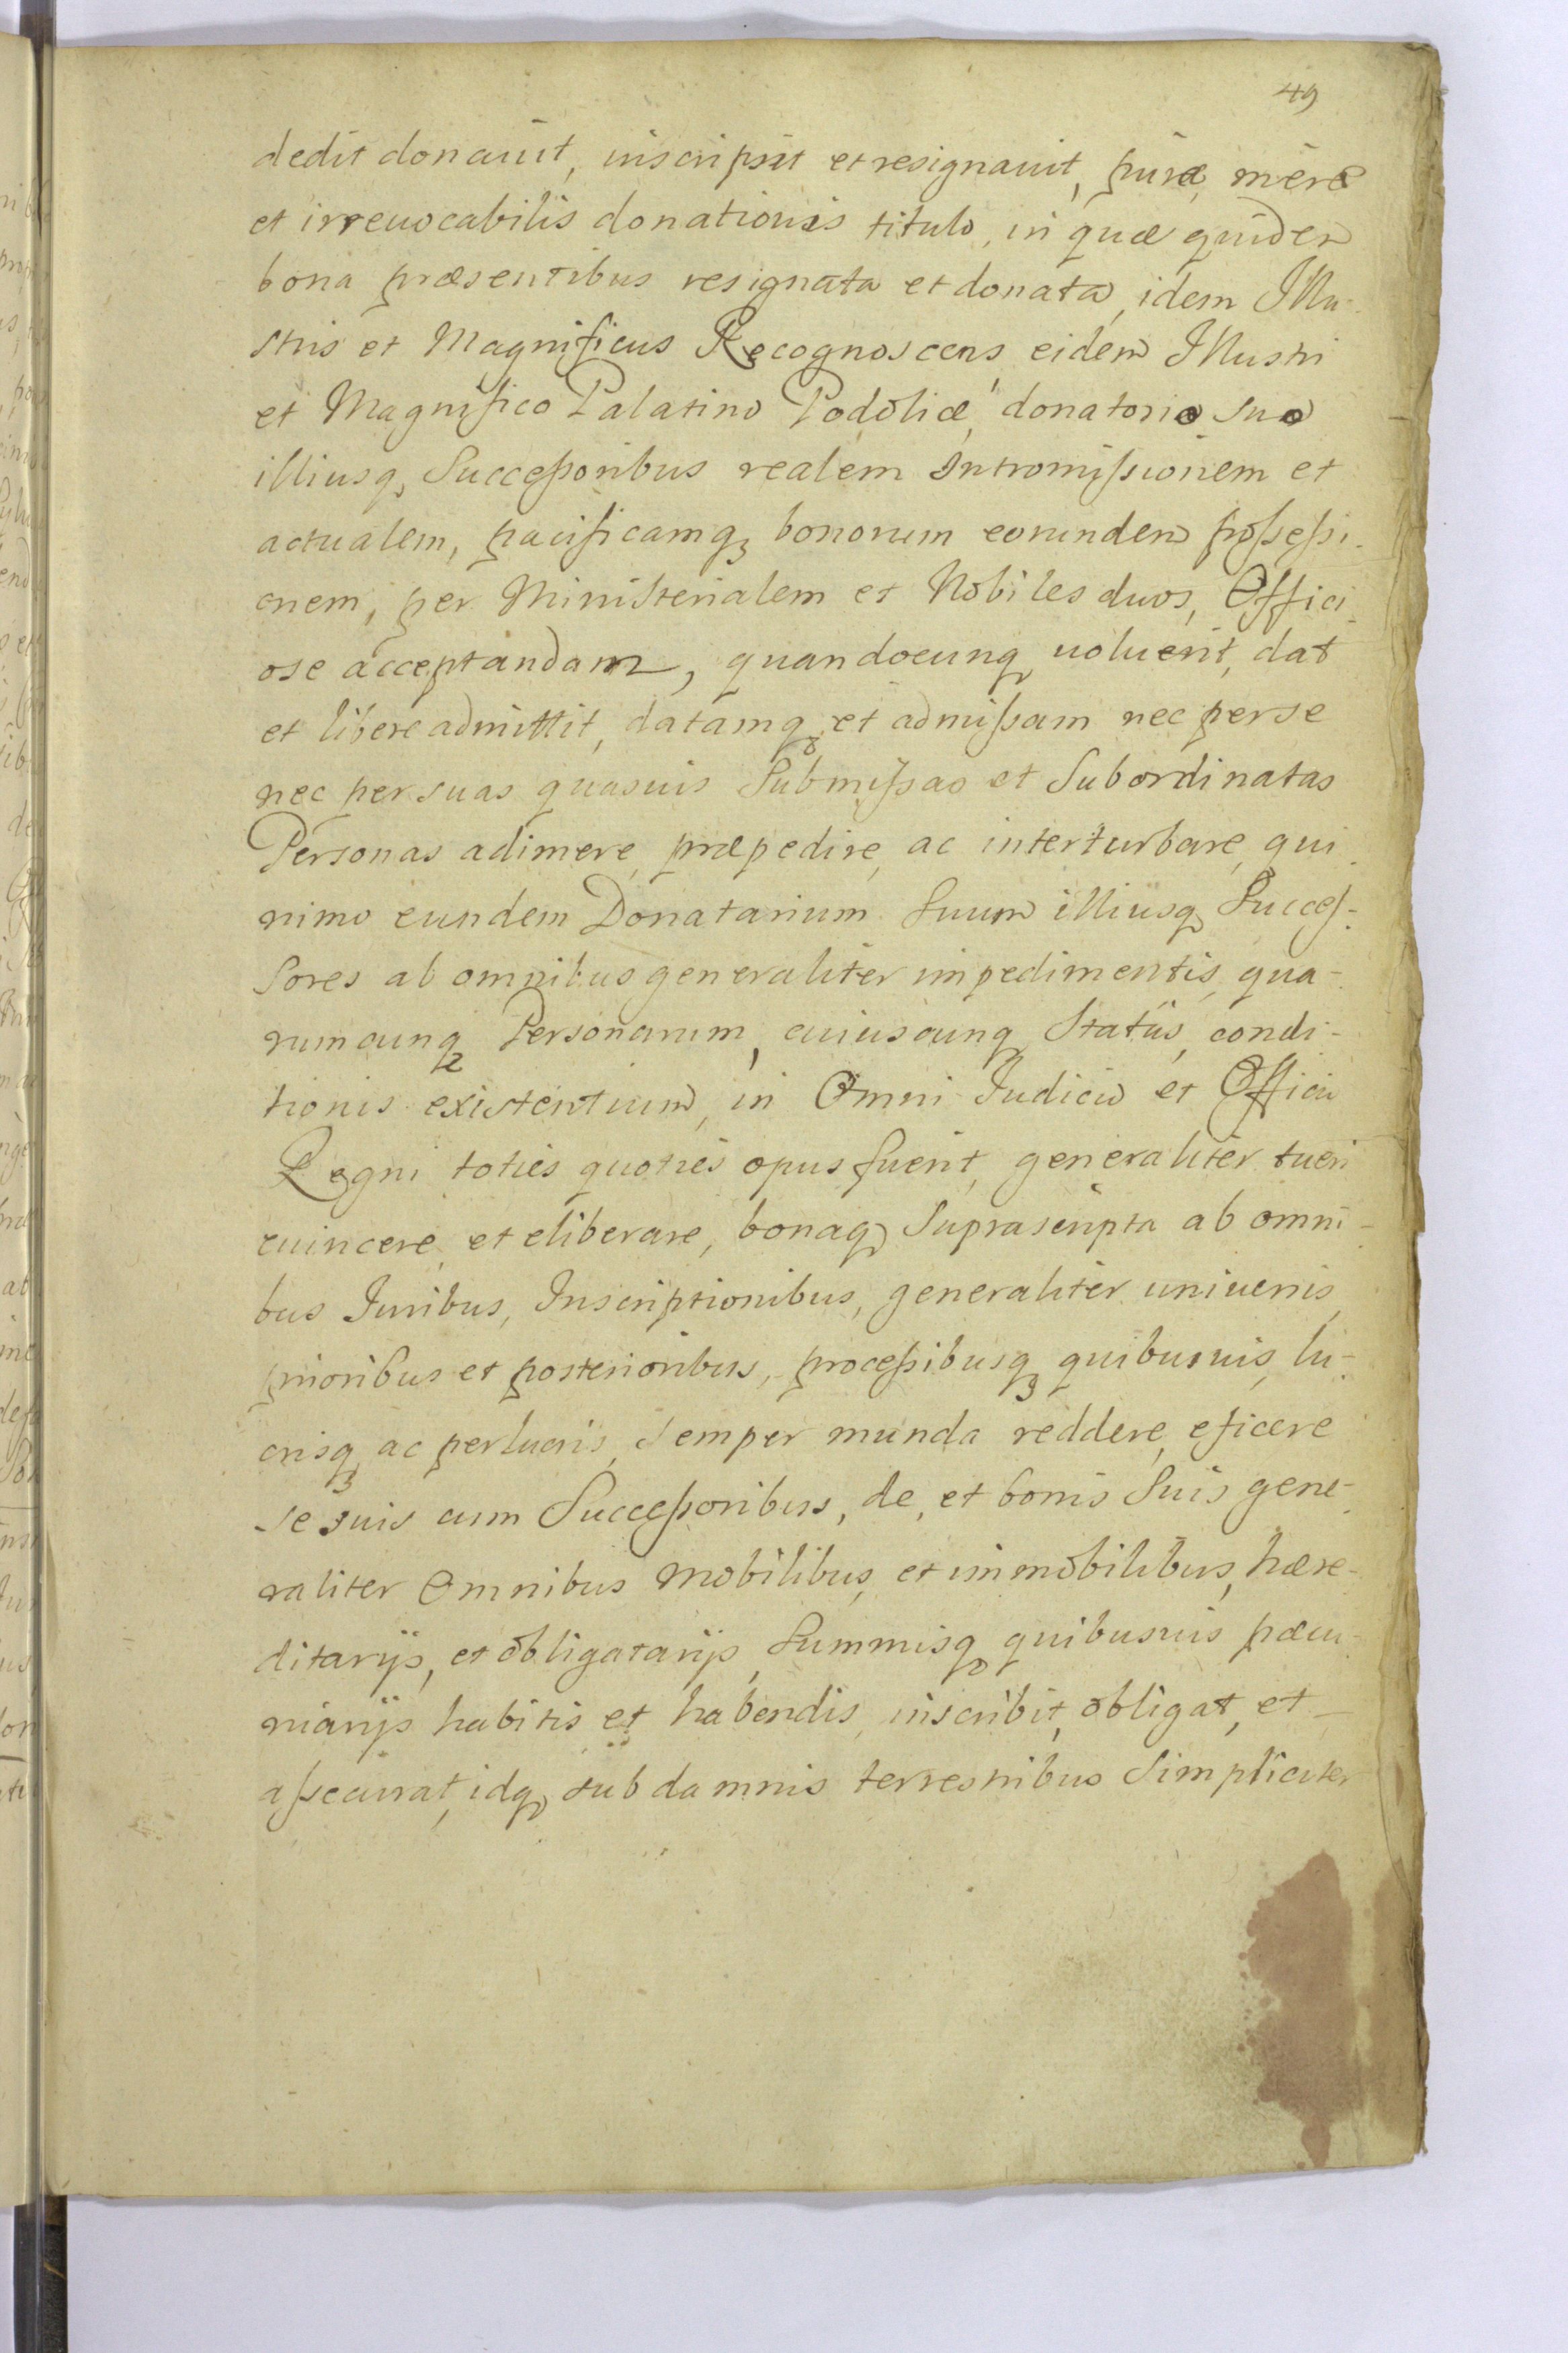 49
dedit donauit, inscripsit et resignauit, puræ, meræ
et irreuocabilis donationis titulo, in quæ quidem
bona præsentibus resignata et donata, idem Illu-
stris et Magnificus Recognoscens eidem Illustri
et Magnifico Palatino Podoliæ, donatorio suo
illiusq, Successoribus realem Intromissionem et
actualem, pacificamq, bonorum eorundem possessi-
onem, per Ministerialem et Nobiles duos, Offici-
ose acceptandam, quandocunq uoluerit, dat
et libere admittit, datamq, et admissam nec per se
nec per suas quasuis Submissas et Subordinatas
Personas adimere, præpedire, ac interturbare, qui
nimo eundem Donatarium Suum illiusq Succes-
sores ab omnibus generaliter impedimentis, qua-
rumcunq Personarum, cuiuscunq Status, condi-
tionis existentium, in Omni Iudicio et Officio
Regni toties quoties opus fuerit, generaliter tueri
euincere, et eliberare, bonaq, Suprascripta ab omni-
bus Iuribus, Inscriptionibus, generaliter uniuersis,
prioribus et posterioribus, processibusq, quibusuis, lu-
crisq, ac perlucris, Semper munda reddere, eficere
se suis cum Successoribus, de, et bonis Suis gene-
raliter Omnibus Mobilibus, et immobilibus, hære-
ditarijs, et obligatarijs, Summisq, quibusuis pæcu-
niarijs habitis et habendis, inscribit, obligat, et
assecurat, idq, sub damnis terrestribus Simpliciter